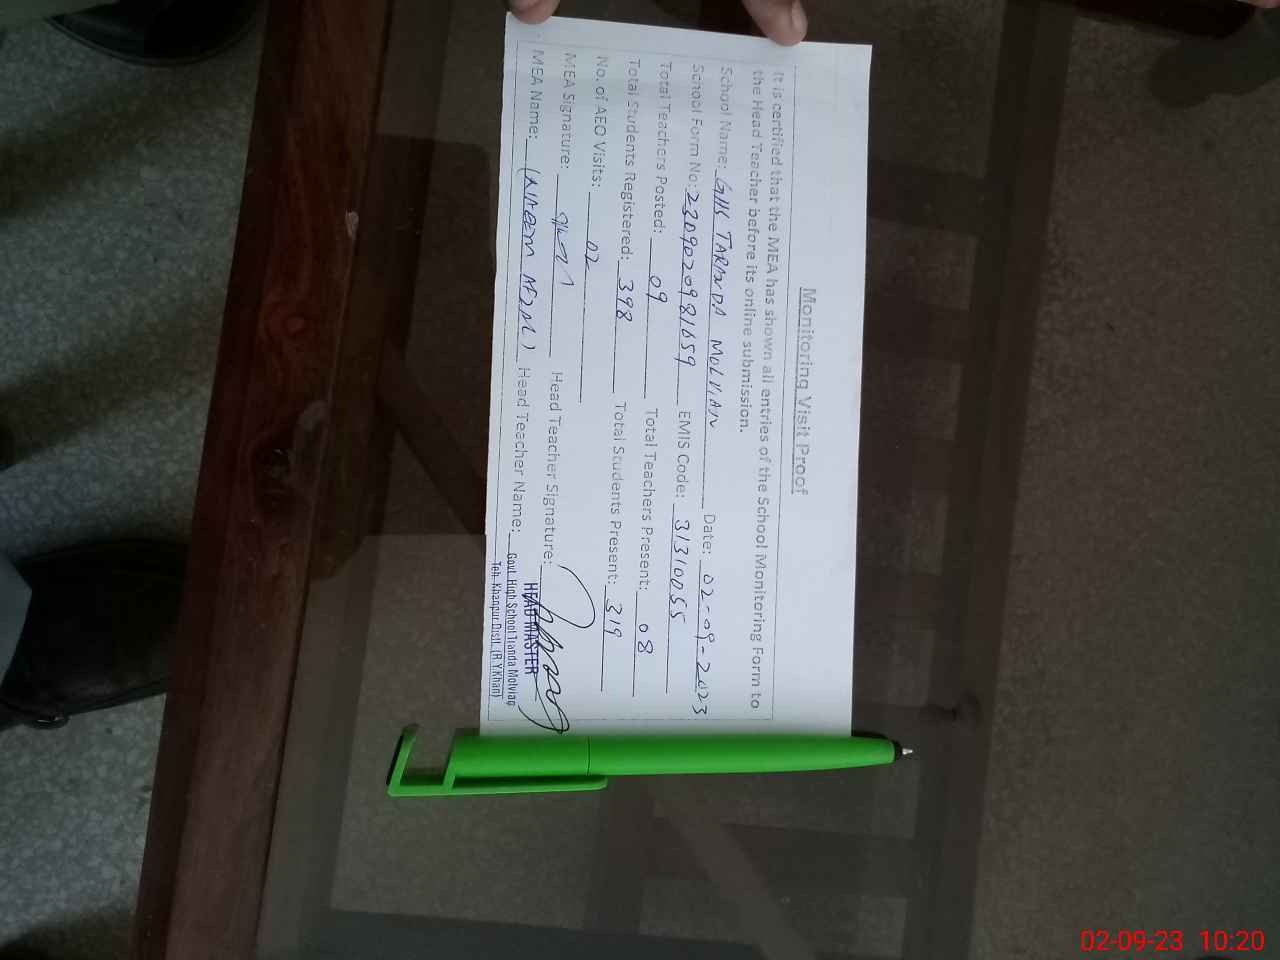 Monitoring Visit Proof
It is certified that the MEA has shown all entries of the School Monitoring Form to
the Head Teacher before its online submission.
School Name: GHS TARANDA MOLVIAN Date: 02-09-2023
School Form No: 2309020981659 EMIS Code: 31310055
Total Teachers Posted: 09 Total Teachers Present: 08
Total Students Registered: 398 Total Students Present: 319
No. of AEO Visits: 02
MEA Signature: Head Teacher Signature:
MEA Name: (NAEEM AZAM) Head Teacher Name:
HEAD MASTER
Govt. High School Tranda Molvian
Teh. Khanpur Distt. (R.Y.Khan)
02-09-23 10:20